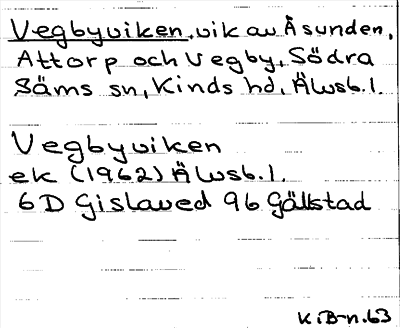 Vegbyviken, vik av Åsunden,
Attorp och Vegby, Södra
Säms sn, Kinds hd, Älvsb.l.
Vegbyviken
ek (1962) Älvsb.l.
6D Gislaved 96 Gällstad
KiB-n.63